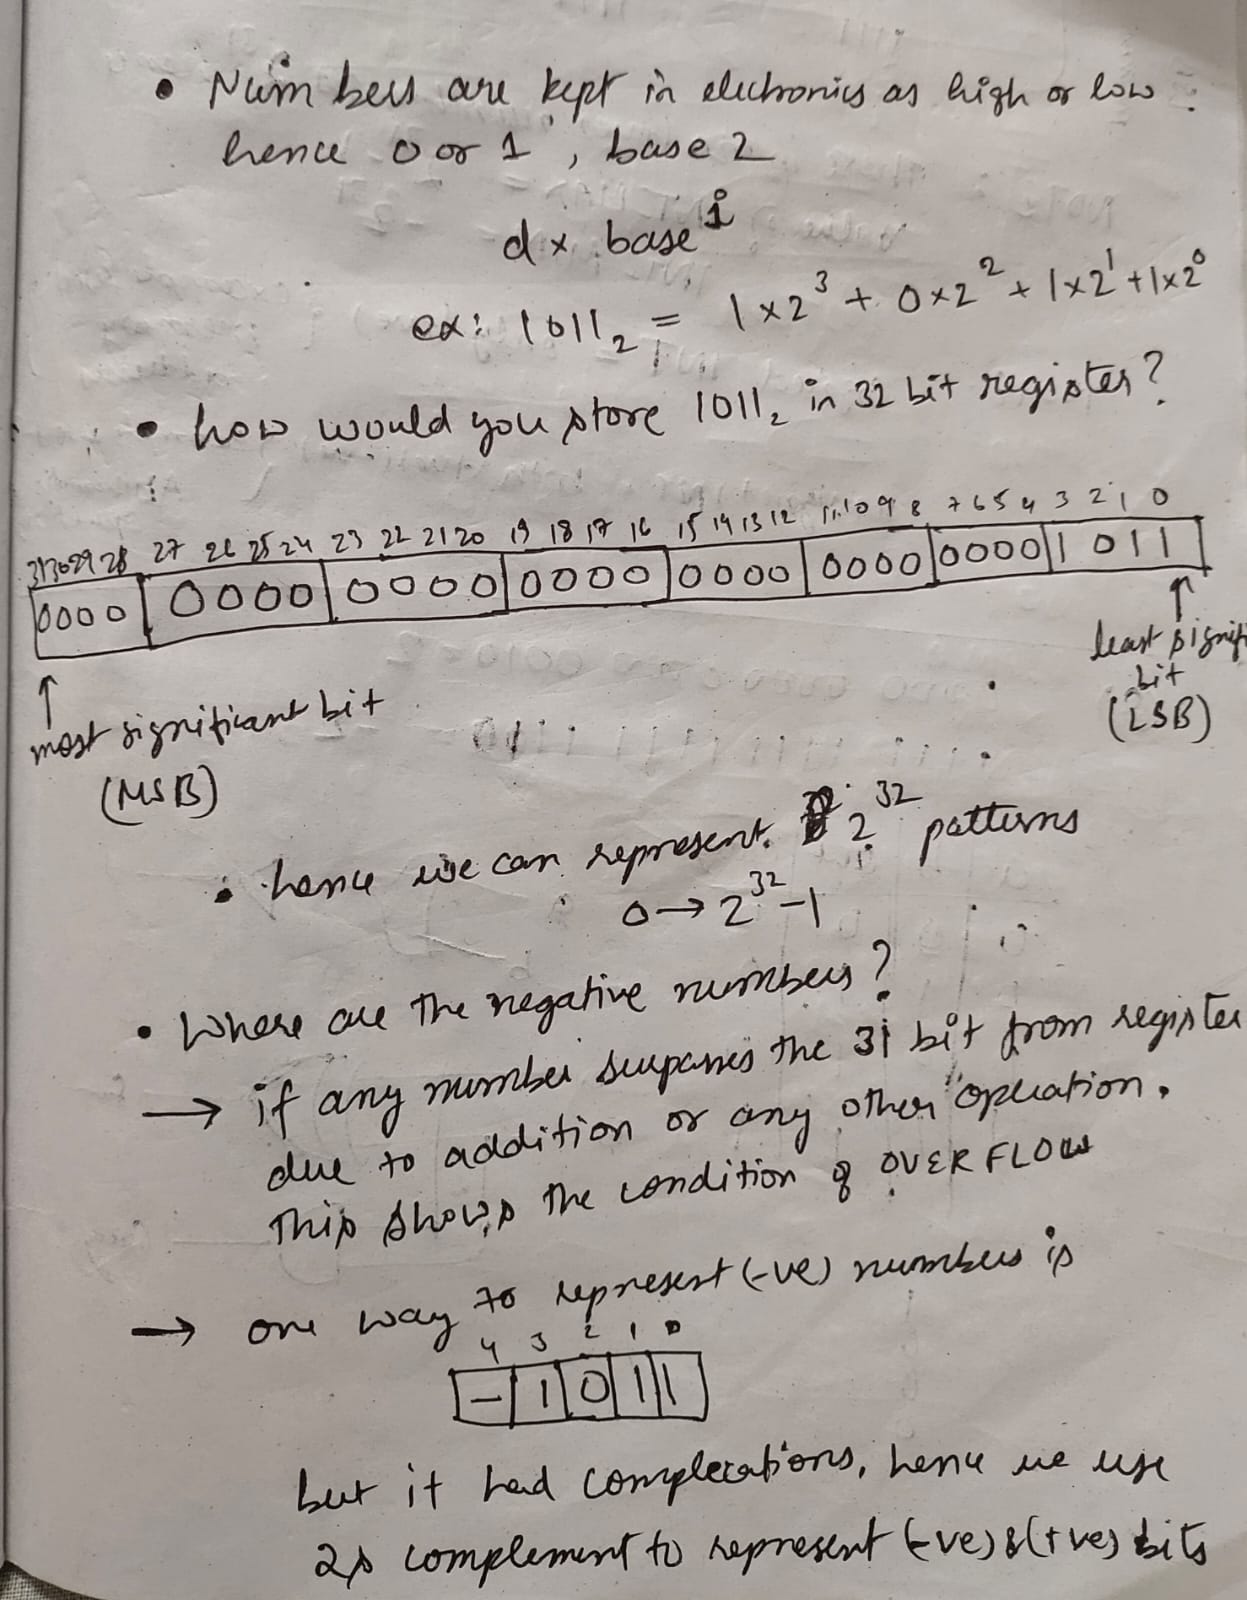 • Numbers are kept in electronics as high or low
hence 0 or 1, base 2
d x base^i
ex: 1011₂ = 1x2³ + 0x2² + 1x2¹ + 1x2⁰
• how would you store 1011₂ in 32 bit register?
31 30 29 28 27 26 25 24 23 22 21 20 19 18 17 16 15 14 13 12 11 10 9 8 7 6 5 4 3 2 1 0
0000 0000 0000 0000 0000 0000 0000 1011
↑ most significant bit
(MSB)
↑ least signifi
bit
(LSB)
• hence we can represent 2³² patterns
0 → 2³² - 1
• Where are the negative numbers?
→ if any number surpasses the 31 bit from register
due to addition or any other operation.
This shows the condition of OVERFLOW
→ one way to represent (-ve) numbers is
4 3 2 1 0
- 1 0 1 1
but it had complecations, hence we use
2s complement to represent (-ve) & (+ve) bits